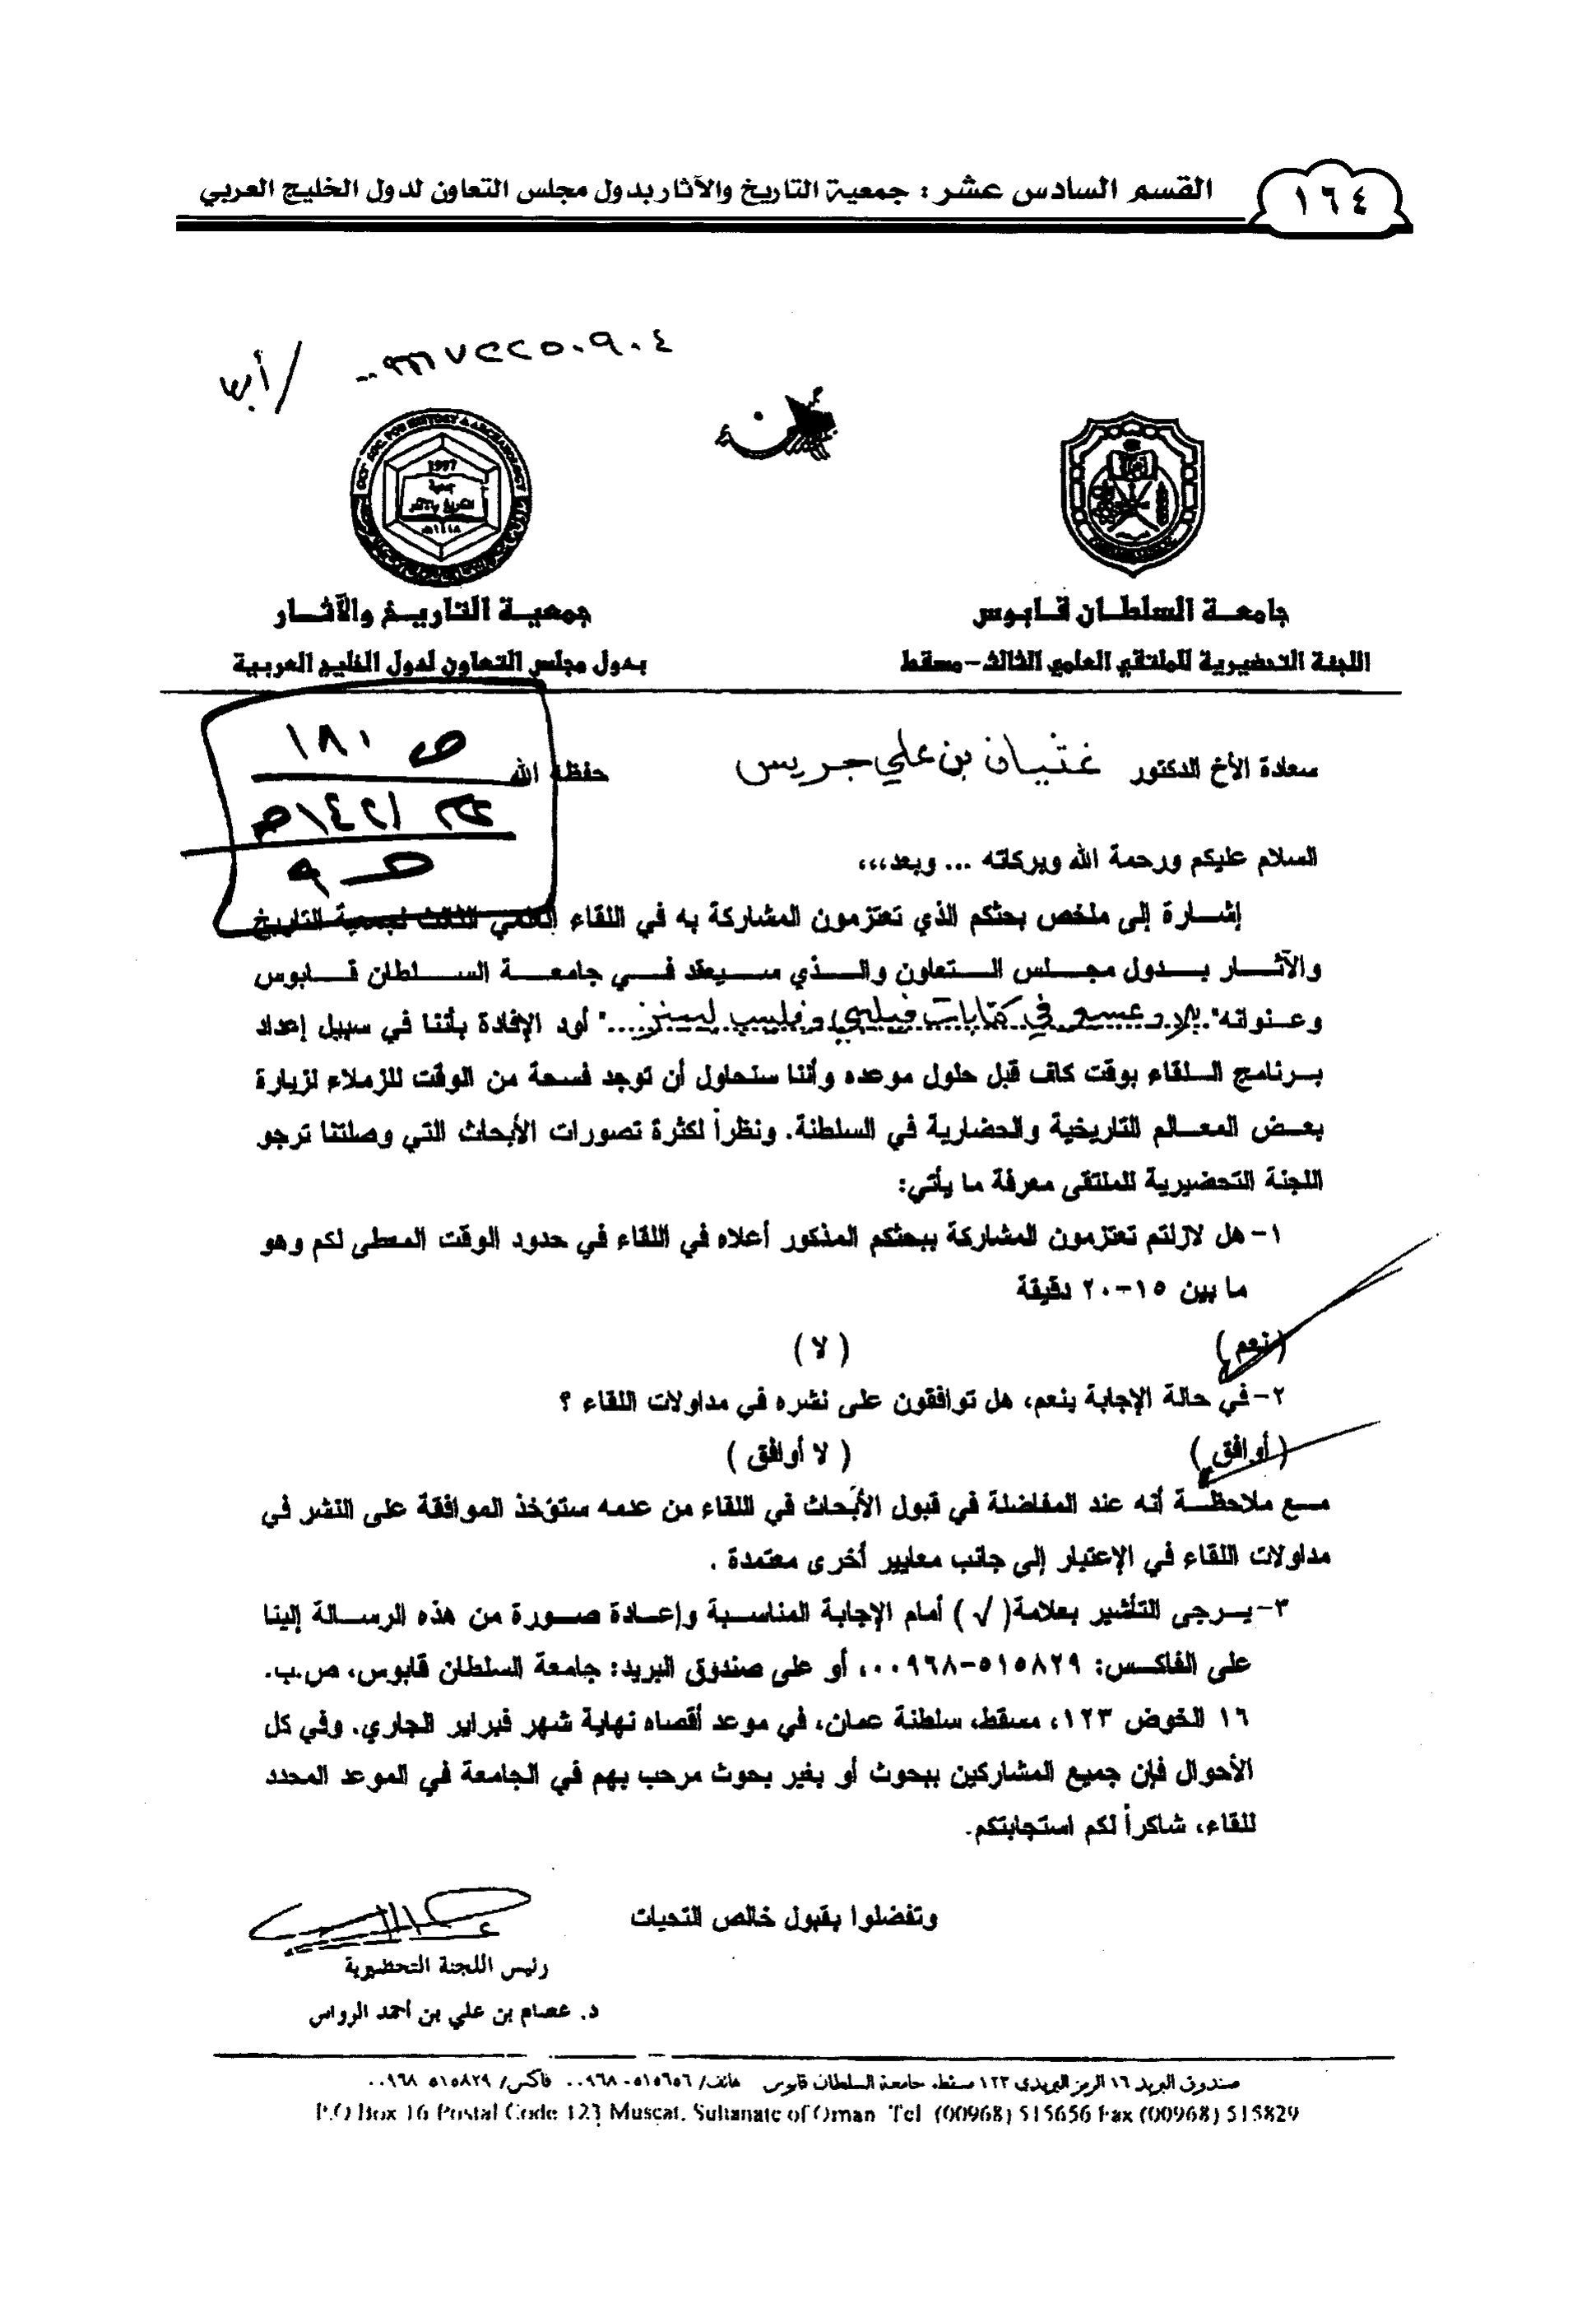 ١٦٤
القسم السادس عشر : جمعية التاريخ والآثار بدول مجلس التعاون لدول الخليج العربي
٠٠٩٦٦٧٢٢٥٠٩٠٤
1997
جمعية
التاريخ والآثار
١٤١٨هـ
جامعة السلطان قابوس
جمعية التاريخ والآثار
اللجنة التحضيرية للملتقي العلمي الثالث - مسقط
بدول مجلس التعاون لدول الخليج العربية
ص ١٨١
سعادة الأخ الدكتور غثيان بن علي جريس حفظه الله
السلام عليكم ورحمة الله وبركاته ... وبعد،،،
إشارة إلى ملخص بحثكم الذي تعتزمون المشاركة به في اللقاء العلمي الثالث لجمعية التاريخ
والآثار بدول مجلس التعاون والذي سيعقد في جامعة السلطان قابوس
وعنوانه "بلاد عسير في كتابات فيلبي وفليب ليبنز...." أود الإفادة بأننا في سبيل إعداد
برنامج اللقاء بوقت كاف قبل حلول موعده وأننا سنحاول أن نوجد فسحة من الوقت للزملاء لزيارة
بعض المعالم التاريخية والحضارية في السلطنة. ونظراً لكثرة تصورات الأبحاث التي وصلتنا نرجو
اللجنة التحضيرية للملتقى معرفة ما يأتي:
١- هل لازلتم تعتزمون المشاركة ببحثكم المذكور أعلاه في اللقاء في حدود الوقت المعطى لكم وهو
ما بين ١٥-٢٠ دقيقة
(نعم) ( لا )
٢- في حالة الإجابة بنعم، هل توافقون على نشره في مداولات اللقاء ؟
(أوافق ) ( لا أوافق )
مع ملاحظة أنه عند المفاضلة في قبول الأبحاث في اللقاء من عدمه ستؤخذ الموافقة على النشر في
مداولات اللقاء في الإعتبار إلى جانب معايير أخرى معتمدة .
٣- يرجى التأشير بعلامة( √ ) أمام الإجابة المناسبة وإعادة صورة من هذه الرسالة إلينا
على الفاكس: ٥١٥٨٢٩-٠٠٩٦٨، أو على صندوق البريد: جامعة السلطان قابوس، ص.ب.
١٦ الخوض ١٢٣، مسقط، سلطنة عمان، في موعد أقصاه نهاية شهر فبراير الجاري. وفي كل
الأحوال فإن جميع المشاركين ببحوث أو بغير بحوث مرحب بهم في الجامعة في الموعد المحدد
للقاء، شاكراً لكم استجابتكم.
وتفضلوا بقبول خالص التحيات
رئيس اللجنة التحضيرية
د. عصام بن علي بن أحمد الرواس
صندوق البريد ١٦ الرمز البريدي ١٢٣ مسقط، جامعة السلطان قابوس هاتف/ ٥١٥٦٥٦-٠٠٩٦٨ فاكس/ ٥١٥٨٢٩ ٠٠٩٦٨
P.O Box 16 Postal Code 123 Muscat, Sultanate of Oman Tel (00968) 515656 Fax (00968) 515829